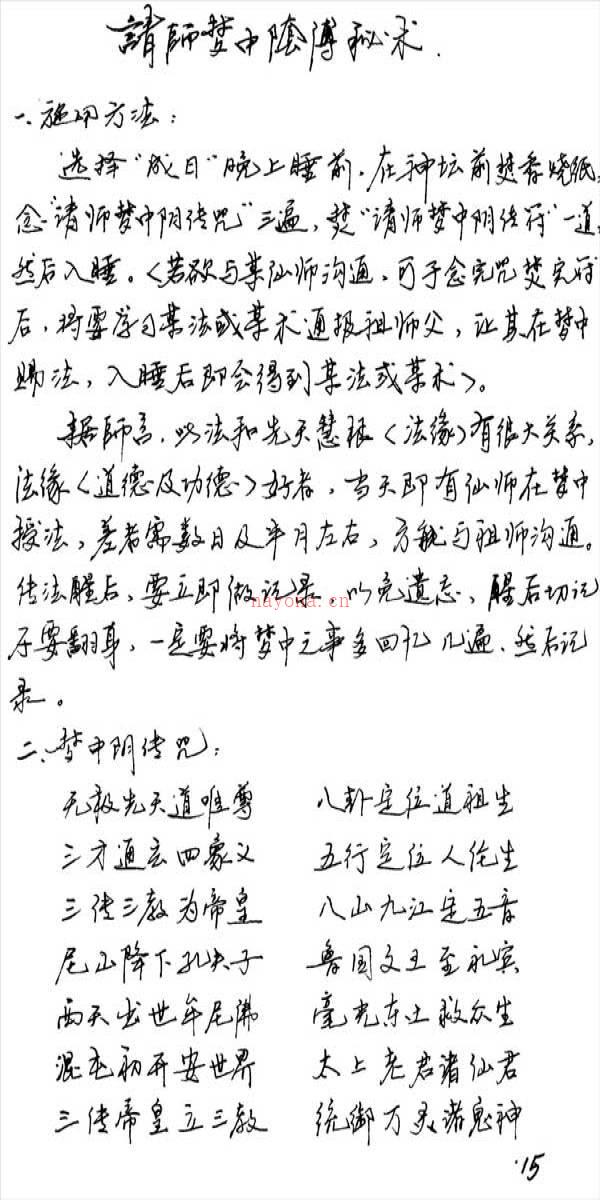 請師梦中陰傳秘术.
一、施用方法：
选择“成日”晚上睡前，在神坛前焚香烧纸，
念“请师梦中阴传咒”三遍，焚“请师梦中阴传符”一道，
然后入睡。〈若欲与某仙师沟通，可于念完咒焚完符
后，将要学习某法或某术通报祖师父，让其在梦中
赐法，入睡后即会得到某法或某术〉。
据師言，此法和先天慧根〈法缘〉有很大关系，
法缘〈道德及功德〉好者，当天即有仙师在梦中
授法，差者需数日及半月左右，方能与祖师沟通。
传法醒后，要立即做记录，以免遗忘，醒后切记
不要翻身，一定要将梦中之事多回忆几遍，然后记
录。
nayona.cn
二、梦中阴传咒：
无极先天道唯尊 八卦定位道祖生
三才通玄四象义 五行定位人伦生
三传三教为帝皇 八山九江定五音
尼山降下孔夫子 鲁国文王至礼宾
西天出世牟尼佛 毫光东土救众生
混屯初开安世界 太上老君诸仙君
三传帝皇立三教 统御万灵诸鬼神
15